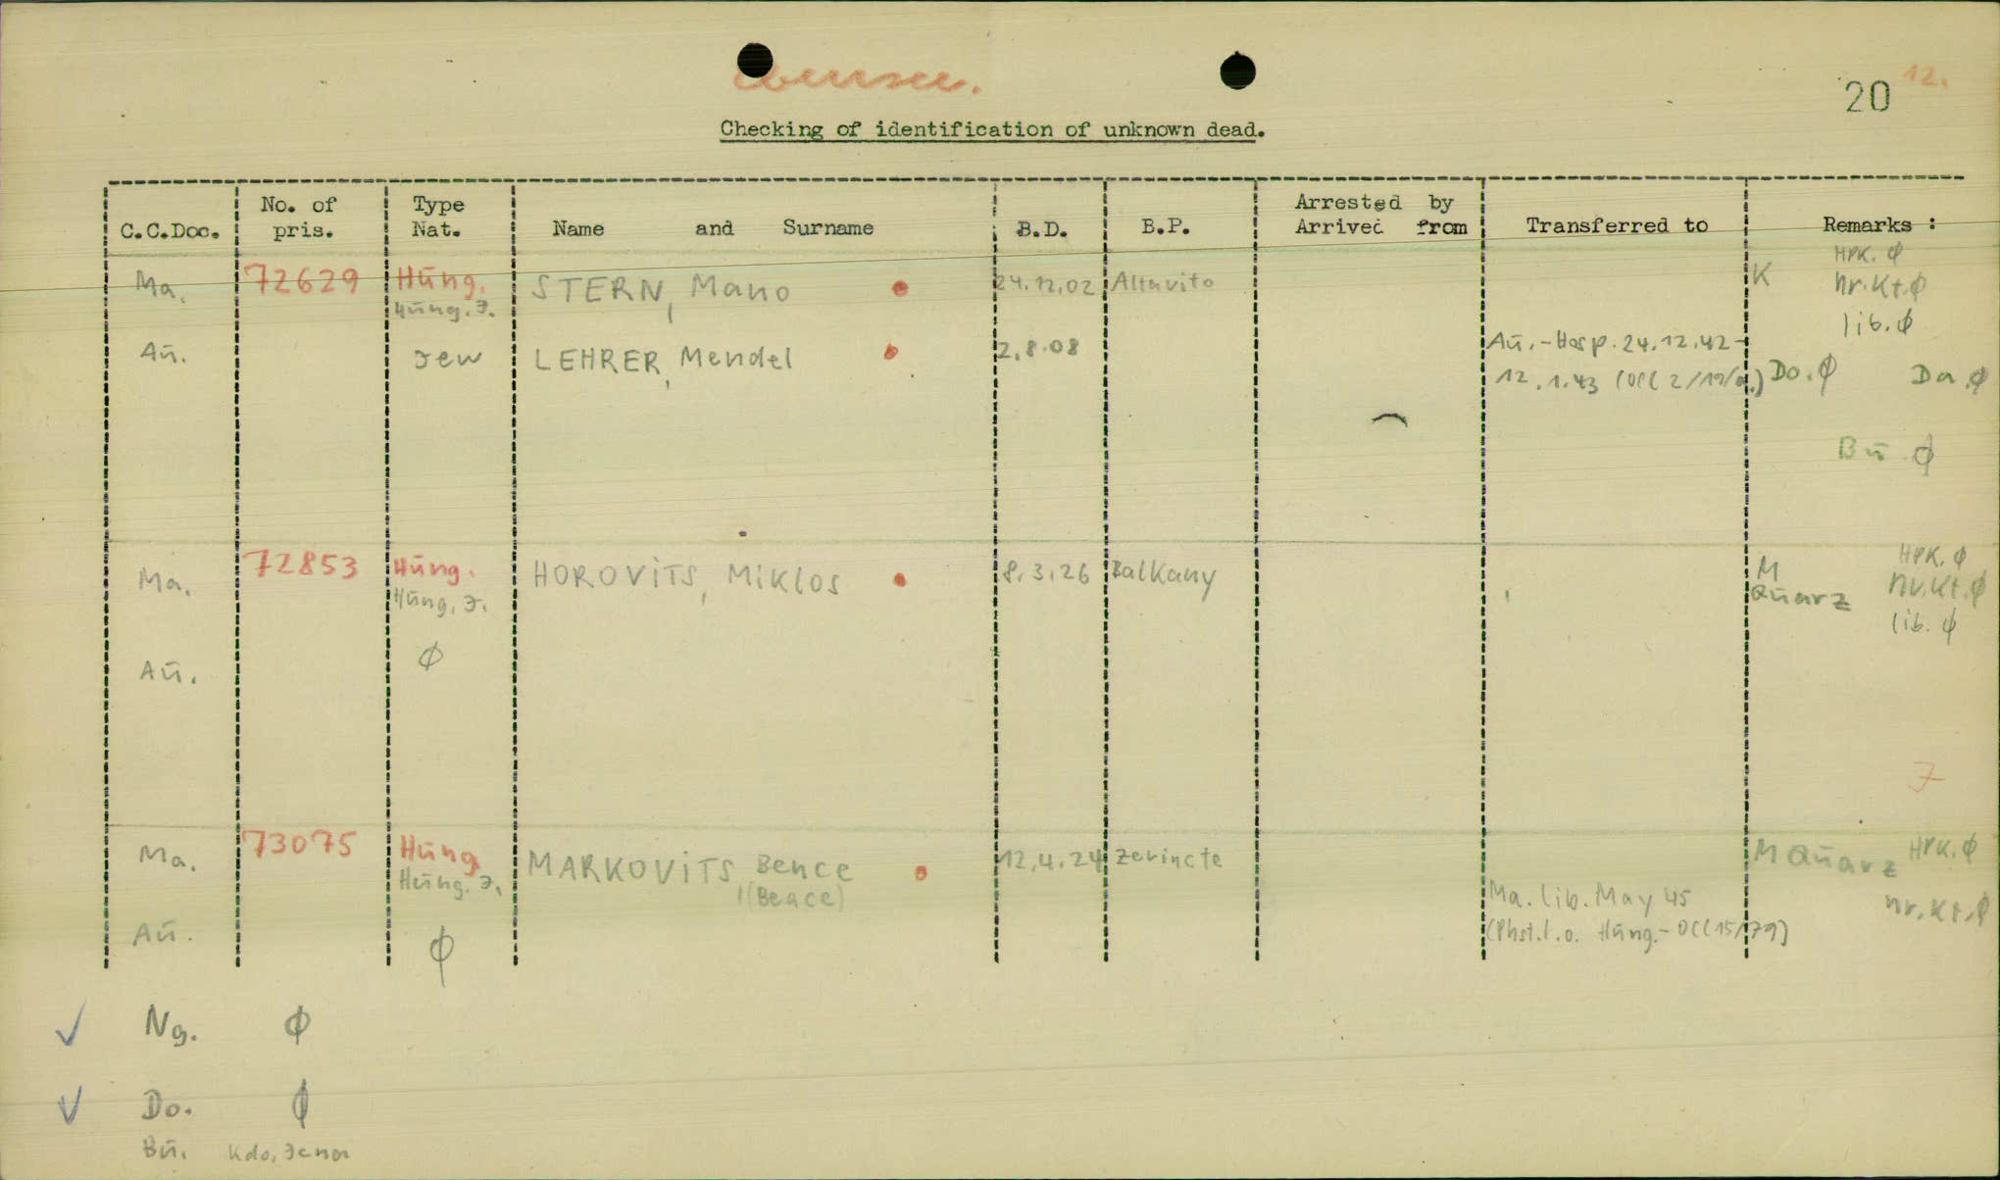 Ebensee.
20 12.
Checking of identification of unknown dead.
C.C.Doc. No. of pris. Type Nat. Name and Surname B.D. B.P. Arrested by Arrived from Transferred to Remarks :
Ma. 72629 Hūng. STERN, Mano 24.12.02 Altavito K HPK. ϕ
Hūng. J. nr.Kt.ϕ
lib.ϕ
Aū. Jew LEHRER, Mendel 2.8.08 Aū.-Hosp. 24.12.42-
12.1.43 (OCC 2/19/a.) Do.ϕ Da.ϕ
Bū ϕ
Ma. 72853 Hūng. HOROViTS, Miklos 8.3.26 Balkany M HPK.ϕ
Hūng. J. Qūarz nr.Kt.ϕ
lib. ϕ
Aū. ϕ
7
Ma. 73075 Hūng MARKOViTS, Bence 12.4.24 Zerincte M Qūarz HPK.ϕ
Hūng. J. (Beace) Ma. lib. May 45 nr.Kt.ϕ
Aū. ϕ (Phst.l.o. Hūng.- OCC15/79)
✓ Ng. ϕ
✓ Do. ϕ
Bū. Kdo, Jena